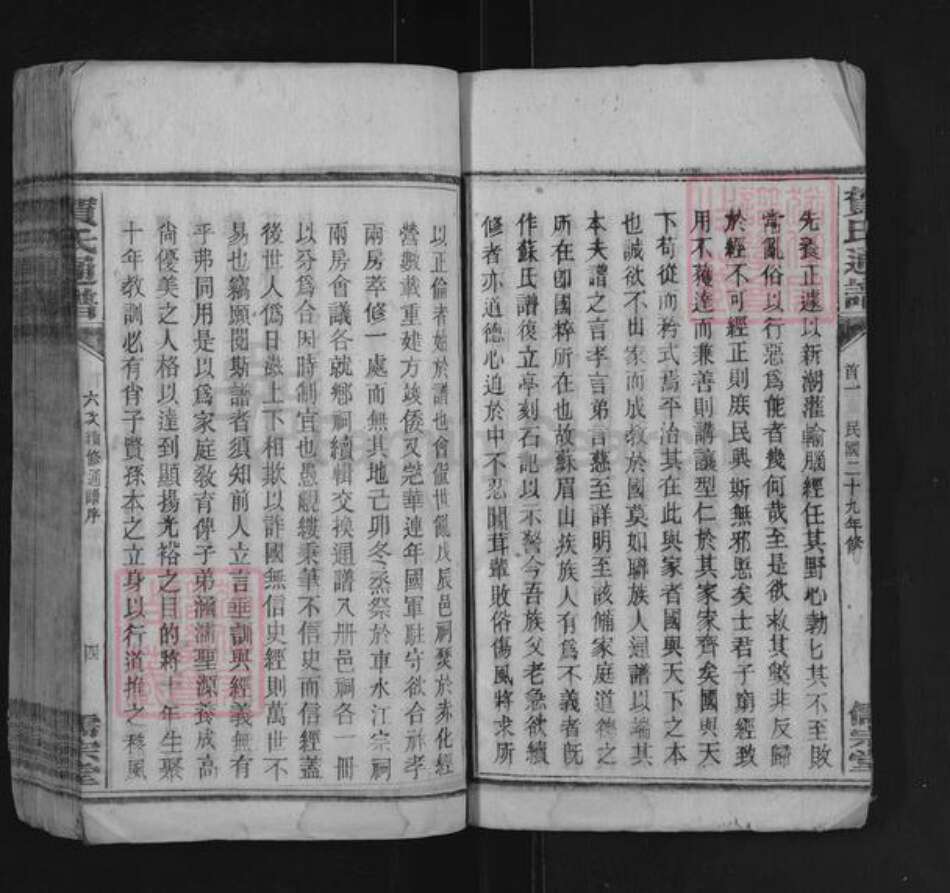 賀氏通譜
首一
民國二十九年修
儒宗堂
先養正遽以新潮灌輸腦經任其野心勃七其不至敗
常亂俗以行惡為能者幾何哉至是欲救其獘非反歸
於經不可經正則庶民興斯無邪慝矣士君子窮經致
用不獲達而兼善則講讓型仁於其家家齊矣國與天
下苟從而矜式焉平治其在此與家者國與天下之本
也誠欲不出家而成教於國莫如聯族人通譜以端其
本夫譜之言李言弟言慈至詳明至該備家庭道德之
所在卽國粹所在也故蘇眉山挨族人有為不義者旣
作蘇氏譜復立亭刻石記以示警今吾族父老急欲續
修者亦道德心迫於中不忍闒茸輩敗俗傷風將求所
以正倫者始於譜也會值世亂戊辰邑祠燹於赤化經
營數載重建方竣倭又逞華連年國軍駐守欲合祥孝
兩房萃修一處而無其地己卯冬烝祭於車水江宗祠
兩房會議各就鄉祠續輯交換通譜入册邑祠各一冊
以分爲合因時制宜也愚覼縷秉筆不信史而信經蓋
後世人僞日滋上下相欺以詐國無信史經則萬世不
易也竊願閱斯譜者須知前人立言垂訓與經義無有
乎弗同用是以爲家庭敎育俾子弟涵濡聖源養成高
尙優美之人格以達到顯揚光裕之目的將十年生聚
十年教訓必有肖子賢孫本之立身以行道推之移風
賀氏通譜
六次續修通譜序
四
儒宗堂